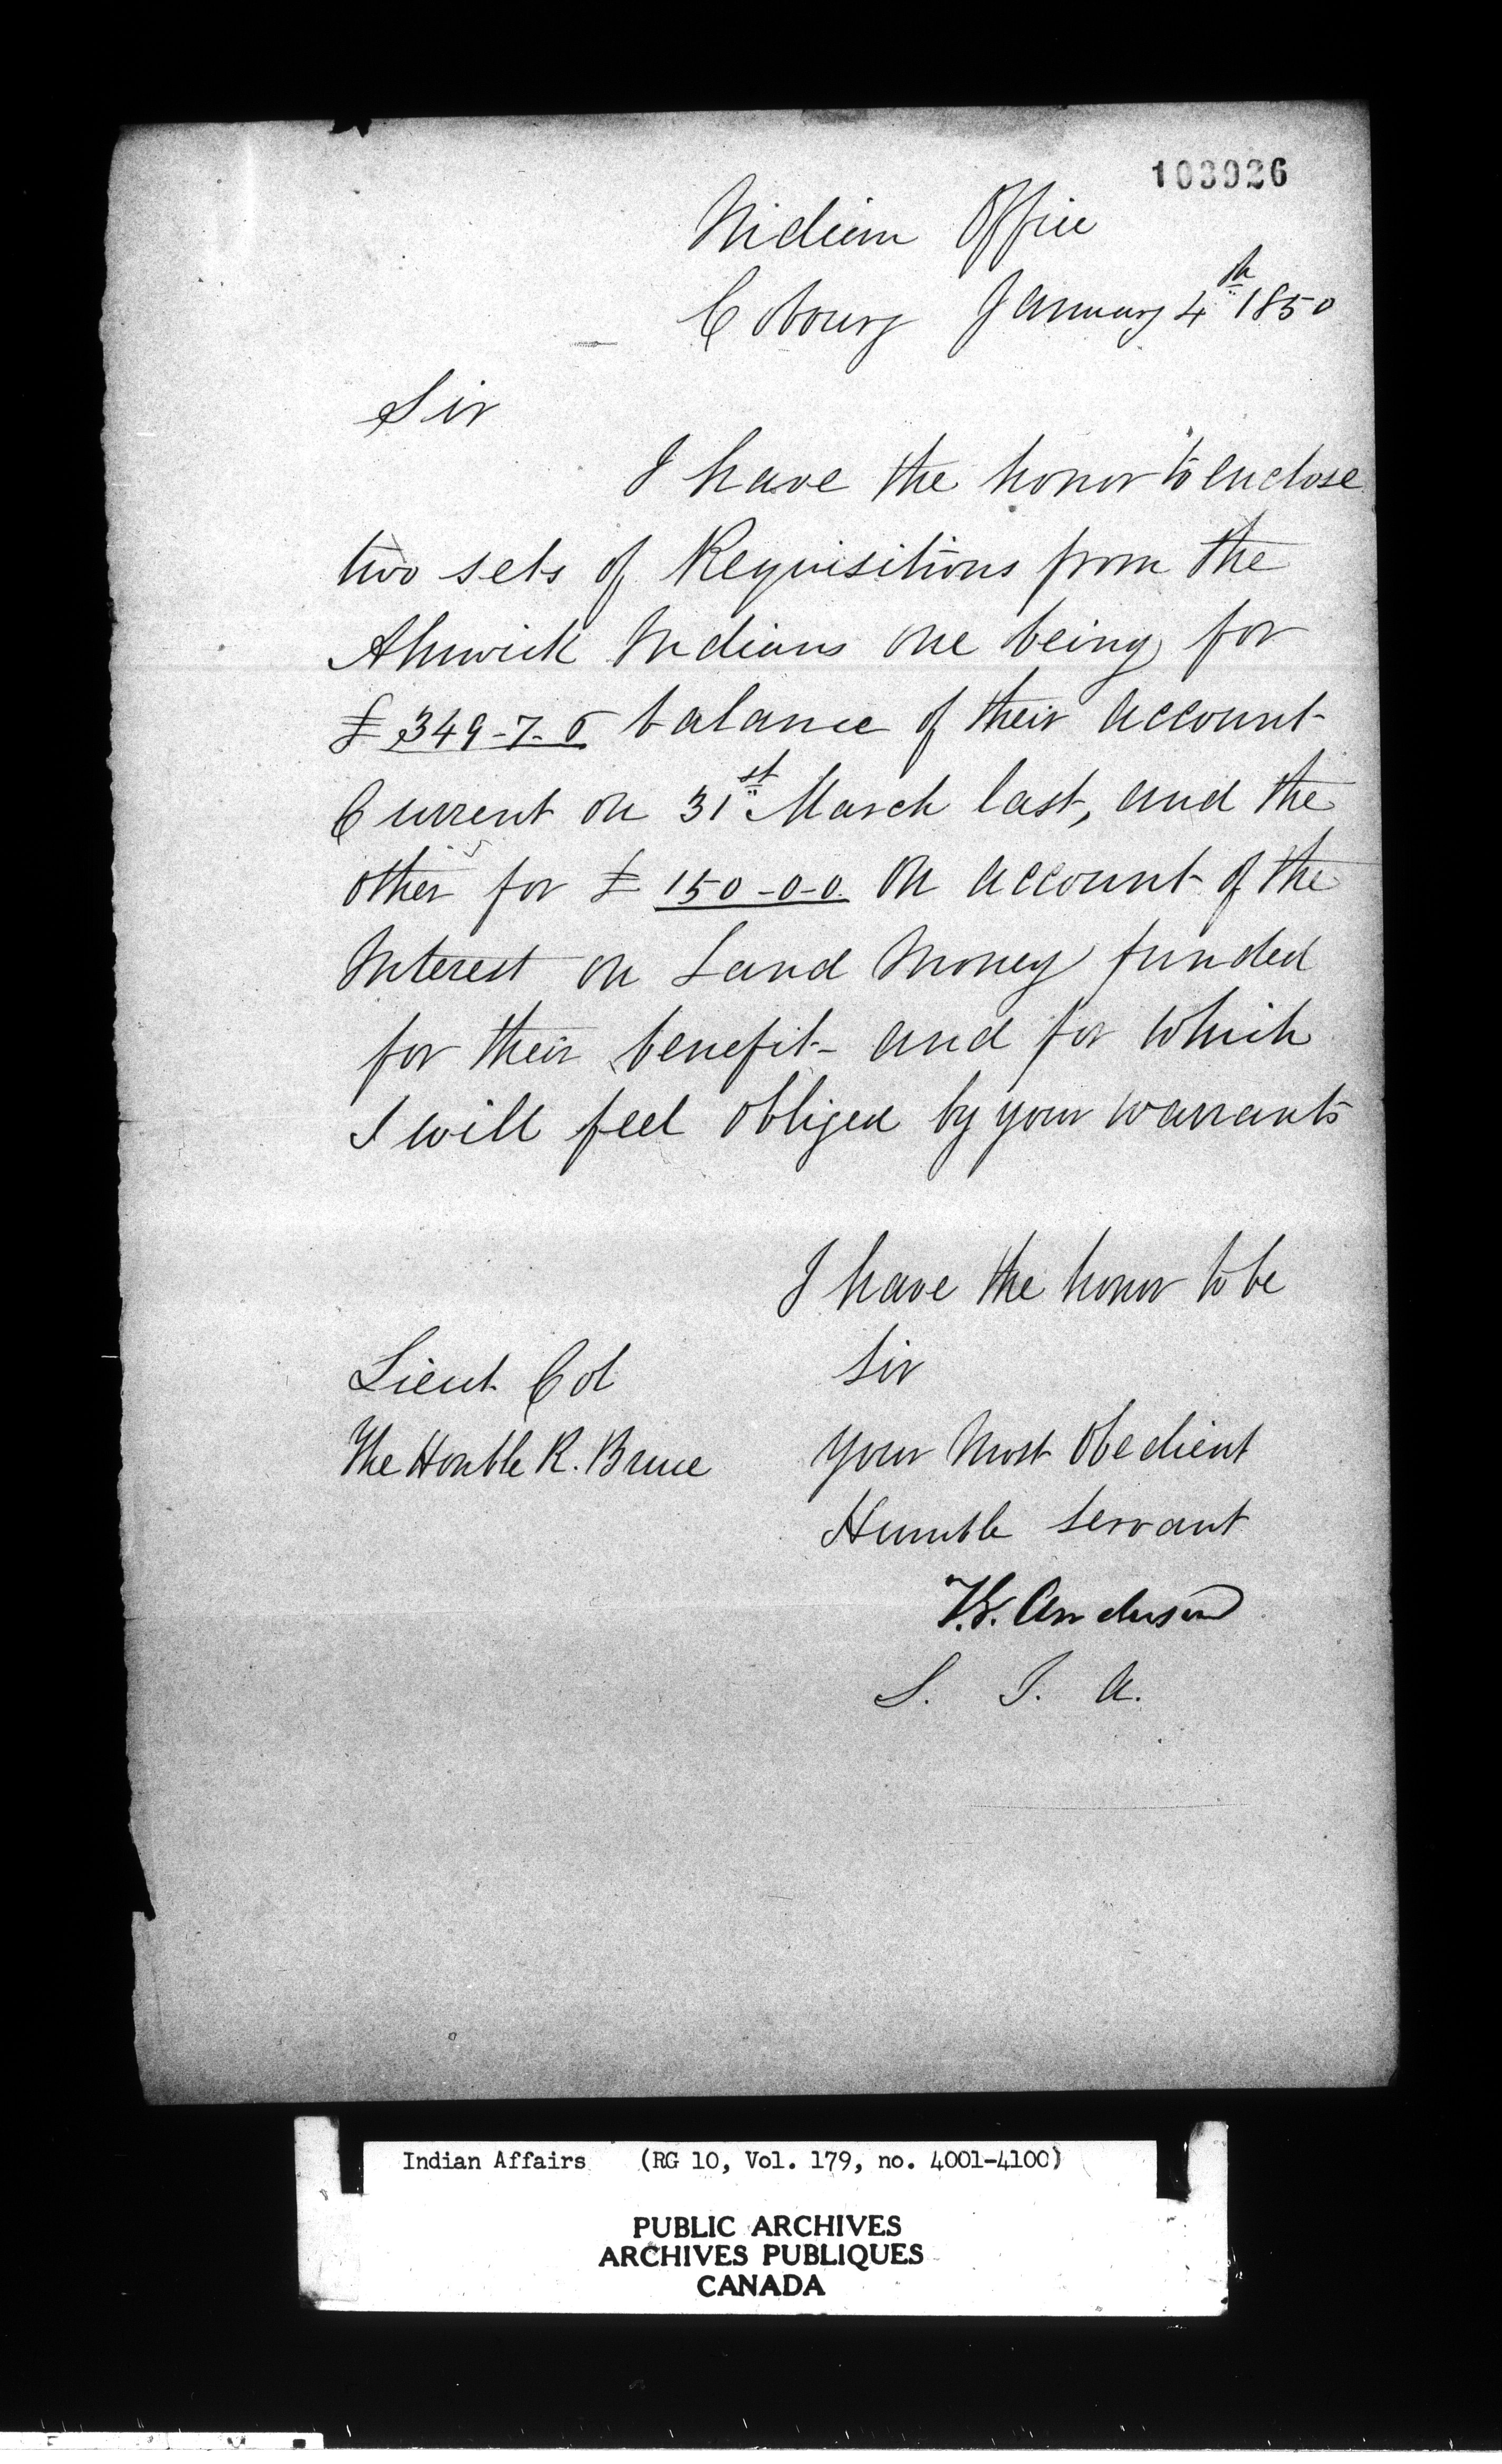 103926
Indian Office
Cobourg January 4th 1850
Sir
I have the honor to enclose
two sets of Requisitions from the
Alnwick Indians one being for
£ 349-7-5 balance of their account
Current on 31st March last, and the
other for £ 150-0-0. on account of the
Interest on Land Money funded
for their benefit and for which
I will feel obliged by your warrants
I have the honor to be
Sir
Your Most Obedient
Humble Servant
T.G. Anderson
S. I. A.
Lieut Col
The Honble R. Bruce
Indian Affairs (RG 10, Vol. 179, no. 4001-4100)
PUBLIC ARCHIVES
ARCHIVES PUBLIQUES
CANADA